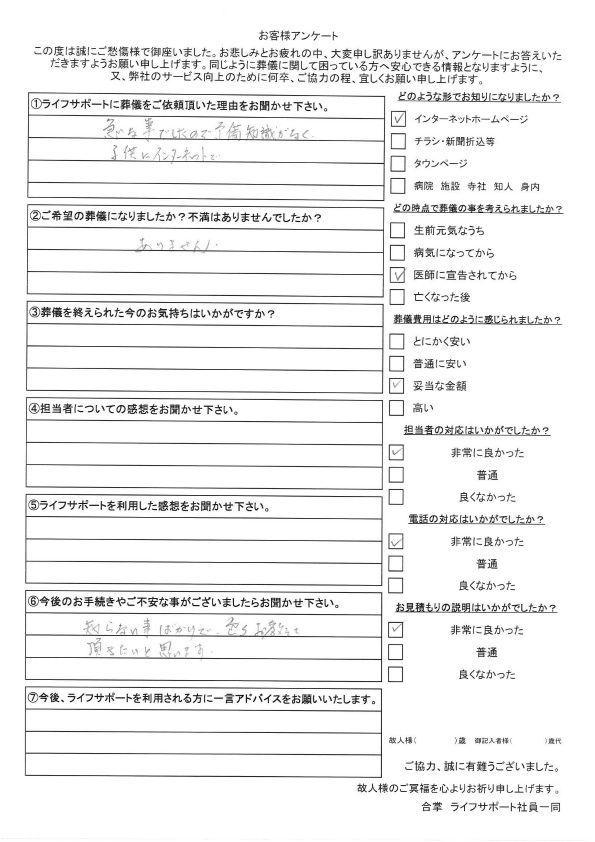 お客様アンケート
この度は誠にご愁傷様で御座いました。お悲しみとお疲れの中、大変申し訳ありませんが、アンケートにお答えいた
だきますようお願い申し上げます。同じように葬儀に関して困っている方へ安心できる情報となりますように、
又、弊社のサービス向上のために何卒、ご協力の程、宜しくお願い申し上げます。
①ライフサポートに葬儀をご依頼頂いた理由をお聞かせ下さい。
急な事でしたので予備知識がなく、
子供にインターネットで
②ご希望の葬儀になりましたか?不満はありませんでしたか?
ありません。
③葬儀を終えられた今のお気持ちはいかがですか?
④担当者についての感想をお聞かせ下さい。
⑤ライフサポートを利用した感想をお聞かせ下さい。
⑥今後のお手続きやご不安な事がございましたらお聞かせ下さい。
知らない事ばかりで、色々お教えて
頂きたいと思います。
⑦今後、ライフサポートを利用される方に一言アドバイスをお願いいたします。
どのような形でお知りになりましたか?
✓ インターネットホームページ
チラシ・新聞折込等
タウンページ
病院 施設 寺社 知人 身内
どの時点で葬儀の事を考えられましたか?
生前元気なうち
病気になってから
✓ 医師に宣告されてから
亡くなった後
葬儀費用はどのように感じられましたか?
とにかく安い
普通に安い
✓ 妥当な金額
高い
担当者の対応はいかがでしたか?
✓ 非常に良かった
普通
良くなかった
電話の対応はいかがでしたか?
✓ 非常に良かった
普通
良くなかった
お見積もりの説明はいかがでしたか?
✓ 非常に良かった
普通
良くなかった
故人様( )歳 御記入者様( )歳代
ご協力、誠に有難うございました。
故人様のご冥福を心よりお祈り申し上げます。
合掌 ライフサポート社員一同